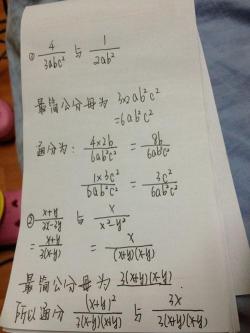 ① 4/3abc² 与 1/2ab²
最简公分母为 3×2ab²c²
=6ab²c²
通分为: 4×2b/6ab²c² = 8b/6ab²c²
1×3c²/6ab²c² = 3c²/6ab²c²
② x+y/3x-3y 与 x/x²-y²
= x+y/3(x-y) = x/(x+y)(x-y)
最简公分母为 3(x+y)(x-y)
所以通分 (x+y)²/3(x-y)(x+y) 与 3x/3(x+y)(x-y)